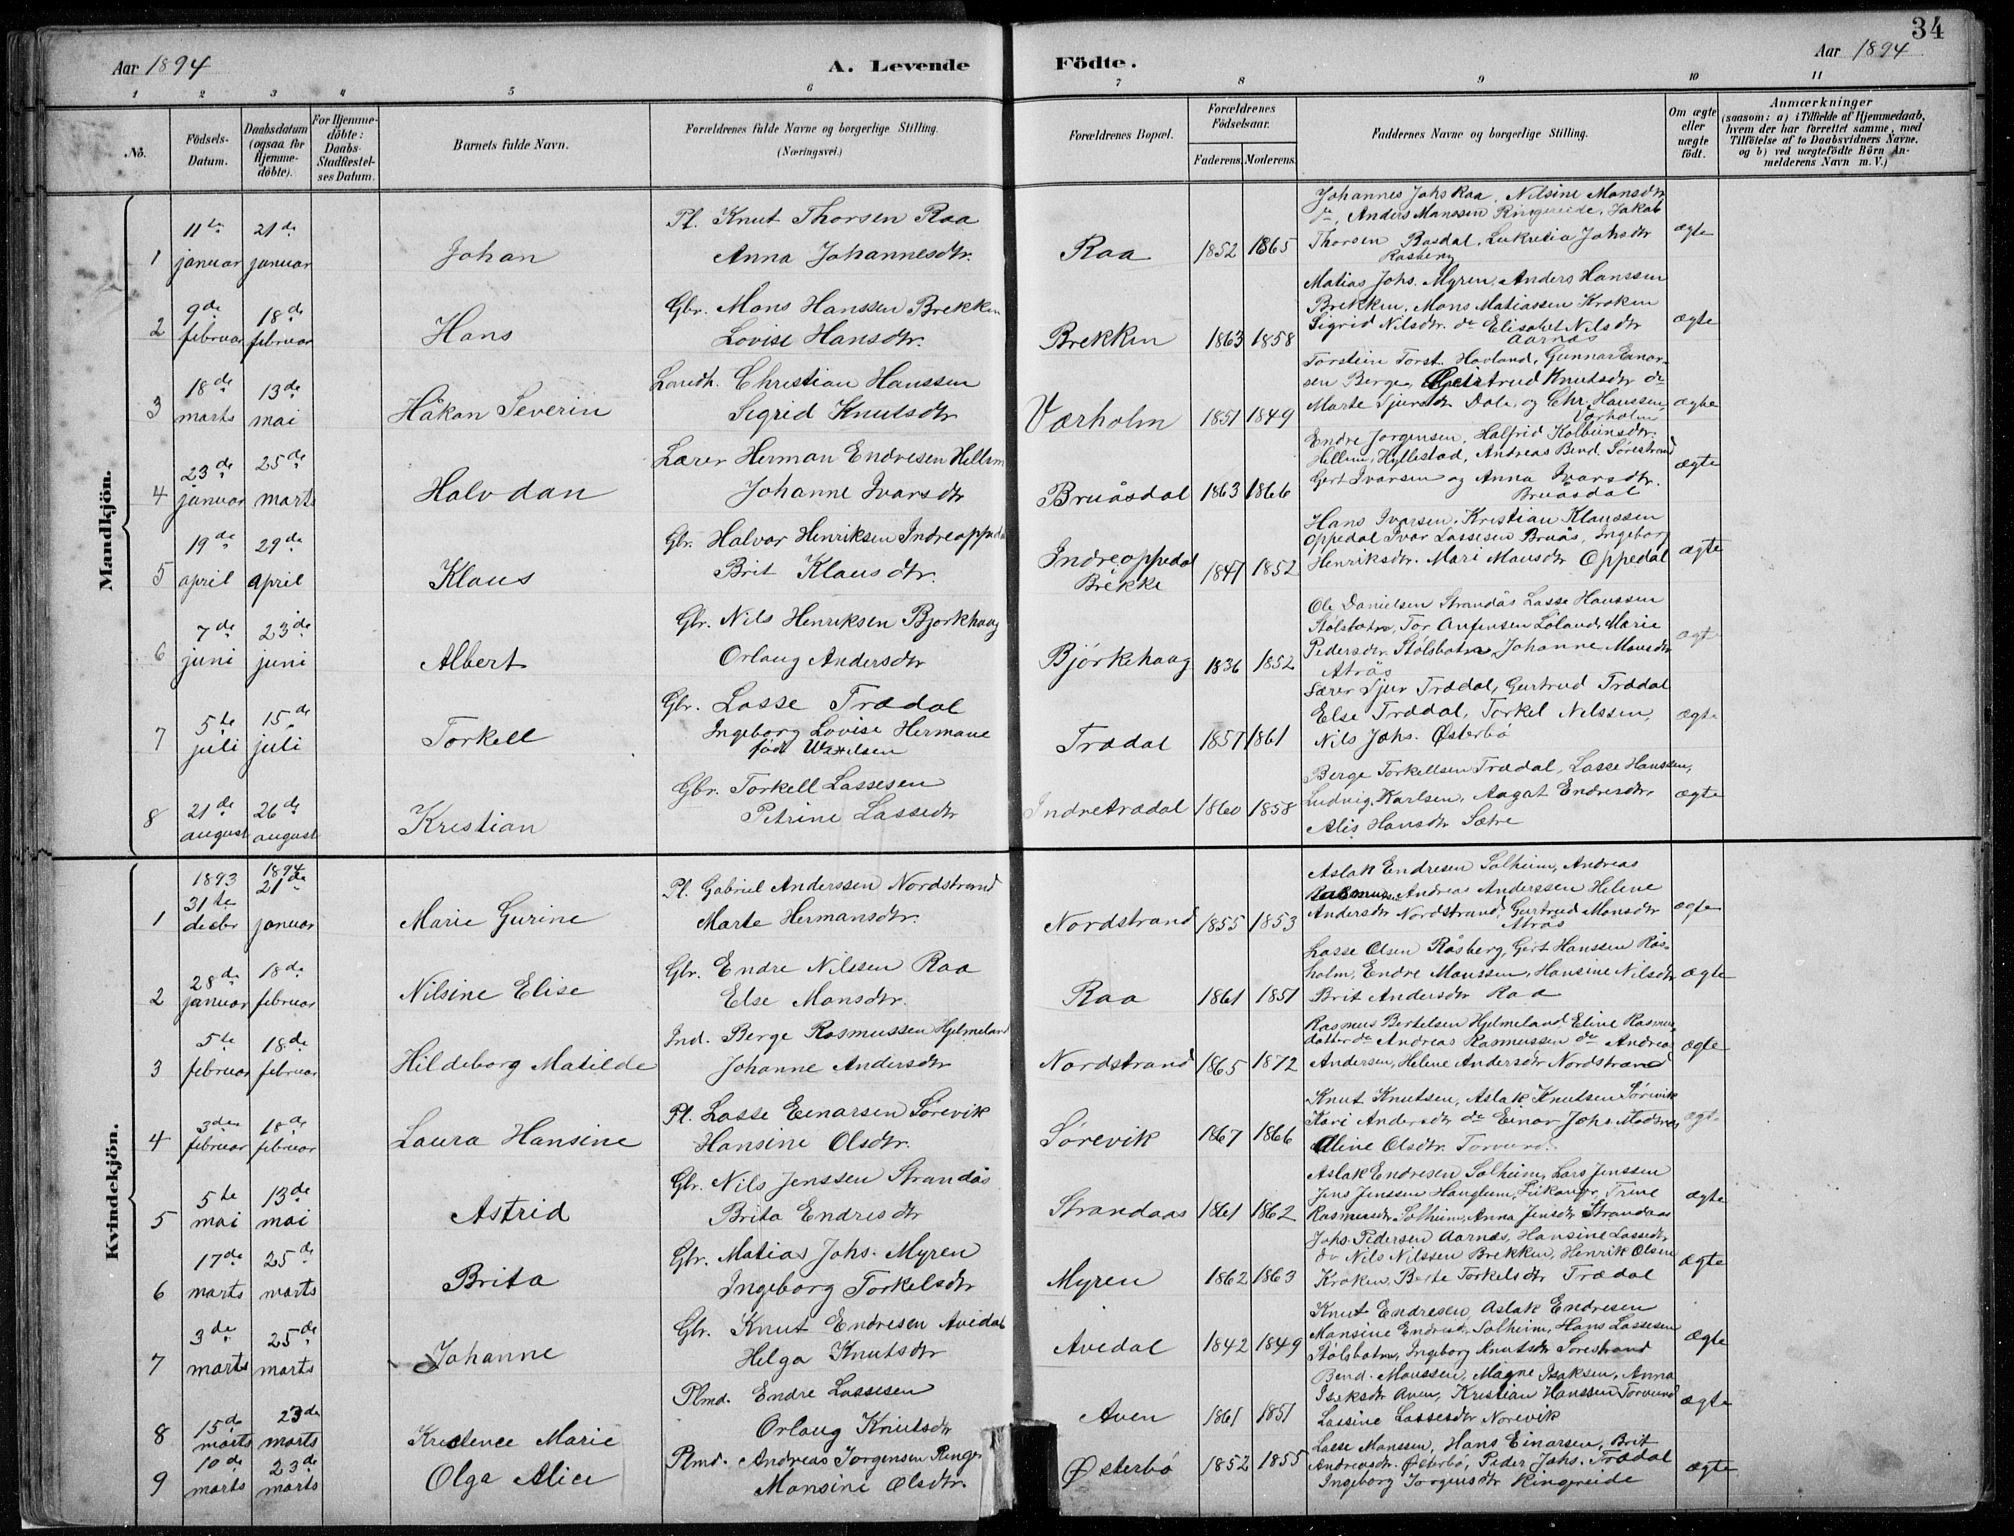 34
Aar 1894
A. Levende Födte.
Aar 1894
1 2 3 4 5 6 7 8 9 10 11
No.
Födsels-Datum.
Daabsdatum (ogsaa for Hjemme-döbte).
For Hjemme-döbte: Daabs-Stadfæstel-ses Datum.
Barnets fulde Navn.
Forældrenes fulde Navne og borgerlige Stilling. (Næringsvei.)
Forældrenes Bopæl.
Forældrenes Födselsaar.
Faderens. Moderens.
Faddernes Navne og borgerlige Stilling.
Om ægte eller uægte födt.
Anmærkninger
(saasom: a) i Tilfælde af Hjemmedaab,
hvem der har forrettet samme, med
Tilföielse af to Daabsvidners Navne,
og b) ved uægtefödte Börn An-
melderens Navn m. V.)
Mandkjön.
1 11te januar 21de januar Johan
Pl. Knut Thorsen Raa
Anna Johannesdtr.
Raa 1852 1865
Johannes Johs Raa, Nilsine Monsdtr
do, Anders Monssen Ringereide, Jakob
Thorsen Basdal, Lukretia Johsdtr
Rasberg
ægte
2 9de februar 18de februar Hans
Gbr. Mons Hanssen Brekken
Lovise Hansdtr.
Brekken 1863 1858
Matias Johs. Myren, Anders Hanssen
Brekken, Mons Matiassen Kroken
Sigrid Nilsdtr. do Elisabet Nilsdtr
Aarnæs
ægte
3 18de marts 13de mai Håkon Severin
Landh. Christian Hanssen
Sigrid Knutsdtr
Værholm 1851 1849
Torstein Torst. Hovland, Gunnar Einar-
sen Berge, Gertrud Knutsdtr do
Marte Sjursdtr Dale, og Chr. Hanssen,
Værholm
ægte
4 23de januar 25de marts Halvdan
Lærer Herman Endresen Hellem
Johanne Ivarsdtr
Bruåsdal 1863 1866
Endre Jørgensen, Halfrid Kolbeinsdtr.
Hellem, Hyllestad, Andreas Bend. Sørestrand
Gert Ivarsen og Anna Ivarsdtr.
Bruåsdal
ægte
5 19de april 29de april Klaus
Gbr. Halvor Henriksen Indreoppedal
Brit Klausdtr.
Indreoppedal
Brekke
1847 1852
Hans Ivarsen, Kristian Klaussen
Oppedal Ivar Lassesen Bruås, Ingeborg
Henriksdtr. Mari Mausdtr Oppedal
ægte
6 7de juni 23de juni Albert
Gbr. Nils Henriksen Bjørkhaug
Orlaug Andersdtr
Bjørkehaug 1836 1852
Ole Danielsen Strandås Lasse Hanssen
Stølsbotn, Tor Anfensen Løland, Marie
Pedersdtr Stølsbotn, Johanne Monsdtr
Atrås
ægte
7 5te juli 15de juli Torkell
Gbr. Lasse Trædal
Ingeborg Lovise Hermane
født
Trædal 1857 1861
Lærer Sjur Trædal, Gurtrud Trædal
Else Trædal, Torkel Nilssen,
Nils Johs. Østerbø
ægte
8 21de august 26de august Kristian
Gbr. Torkell Lassesen
Petrine Lassedtr
Indretrædal 1860 1858
Berge Torkellsen Trædal, Lasse Hanssen,
Ludvig Karlsen, Aagat Endresdtr,
Alis Hansdtr Sætre
ægte
Kvindekjön.
1 1893 31te decbr 1894 21de januar Marie Gurine
Pl. Gabriel Anderssen Nordstrand
Marte Hermansdtr.
Nordstrand 1855 1853
Aslak Endresen Solheim, Andreas
Rasmussen Andreas Anderssen Helene
Andersdtr Nordstrand, Gurtrud Monsdtr
Atrås
ægte
2 28de januar 18de februar Nilsine Elise
Gbr. Endre Nilssen Raa
Else Monsdtr.
Raa 1861 1851
Lasse Olsen Råsberg, Gert Hanssen Rås-
holm, Endre Monssen, Hansine Nilsdtr
Brit Andersdtr Raa
ægte
3 5te februar 18de februar Hildeborg Matilde
Ind. Berge Rasmussen Hjelmeland
Johanne Andersdtr
Nordstrand 1865 1872
Rasmus Bertelsen Hjelmeland, Eline Rasmus-
datter do Andreas Rasmussen do Andreas
Andersen, Helene Andersdtr Nordstrand
ægte
4 3die februar 18de februar Laura Hansine
Pl. Lasse Einarsen Sørevik
Hansine Olsdtr.
Sørevik 1867 1866
Knut Knutsen, Aslak Knutsen Sørevik
Kari Andersdtr do Einar Johs. Modnæs
Oline Olsdtr. Torvund.
ægte
5 5te mai 13de mai Astrid
Gbr. Nils Jenssen Strandås
Brita Endresdtr
Strandaas 1861 1862
Aslak Endresen Solheim, Lars Jenssen
Jens Jenssen Hanglum, Leikanger, Trine
Rasmusdtr Solheim, Anna Jensdtr Strandaas
ægte
6 17de marts 25de marts Brita
Gbr. Matias Johs. Myren
Ingeborg Torkelsdtr
Myren 1862 1863
Johs. Pedersen Aarnæs, Hansine Lassedtr
do Nils Nilssen Brekken, Henrik Olsen
Kroken, Berte Torkelsdtr Trædal
ægte
7 3de marts 25de marts Johanne
Gbr. Knut Endresen Avedal
Helga Knutsdtr
Avedal 1842 1849
Knut Endresen, Aslak Endresen
Monsine Endresdtr Solheim, Hans Lassesen
Stølsbotn, Ingeborg Knutsdtr Sørestrand
ægte
8 15de marts 23de marts Kredence Marie
Plmd. Endre Lassesen
Orlaug Knutsdtr
Aven 1861 1851
Bend. Monssen, Magne Isaksen, Anna
Isaksdtr Aven, Kristian Hanssen Torvund
Lassine Lassesdtr Norevik
ægte
9 10de marts 23de marts Olga Alice
Plmd. Andreas Jørgensen Ringer
Monsine Olsdtr.
Østerbø 1852 1855
Lasse Monssen, Hans Einarsen, Brit
Andreasdtr. Østerbø, Peder Johs. Trædal
Ingeborg Jørgensdtr Ringereide
ægte